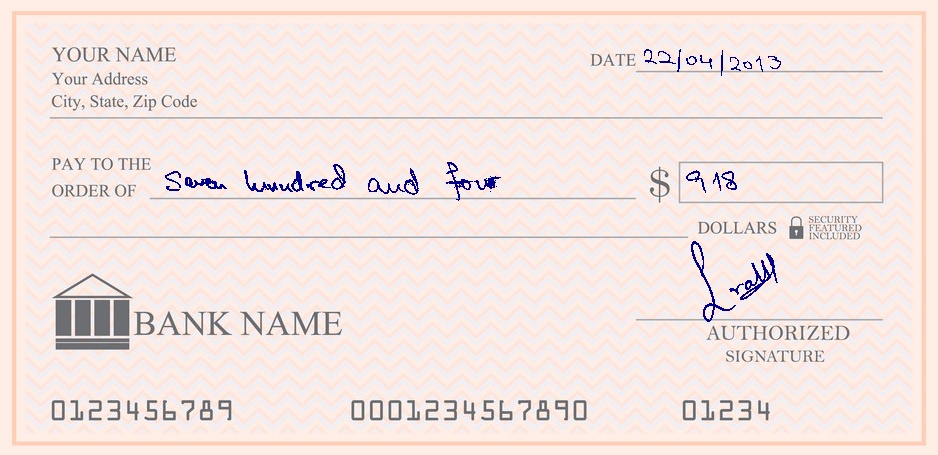 YOUR NAME
Your Address
City, State, Zip Code
DATE 22/04/2013
PAY TO THE
ORDER OF Seven hundred and four $ 918
DOLLARS SECURITY FEATURED INCLUDED
BANK NAME
AUTHORIZED
SIGNATURE
0123456789 0001234567890 01234